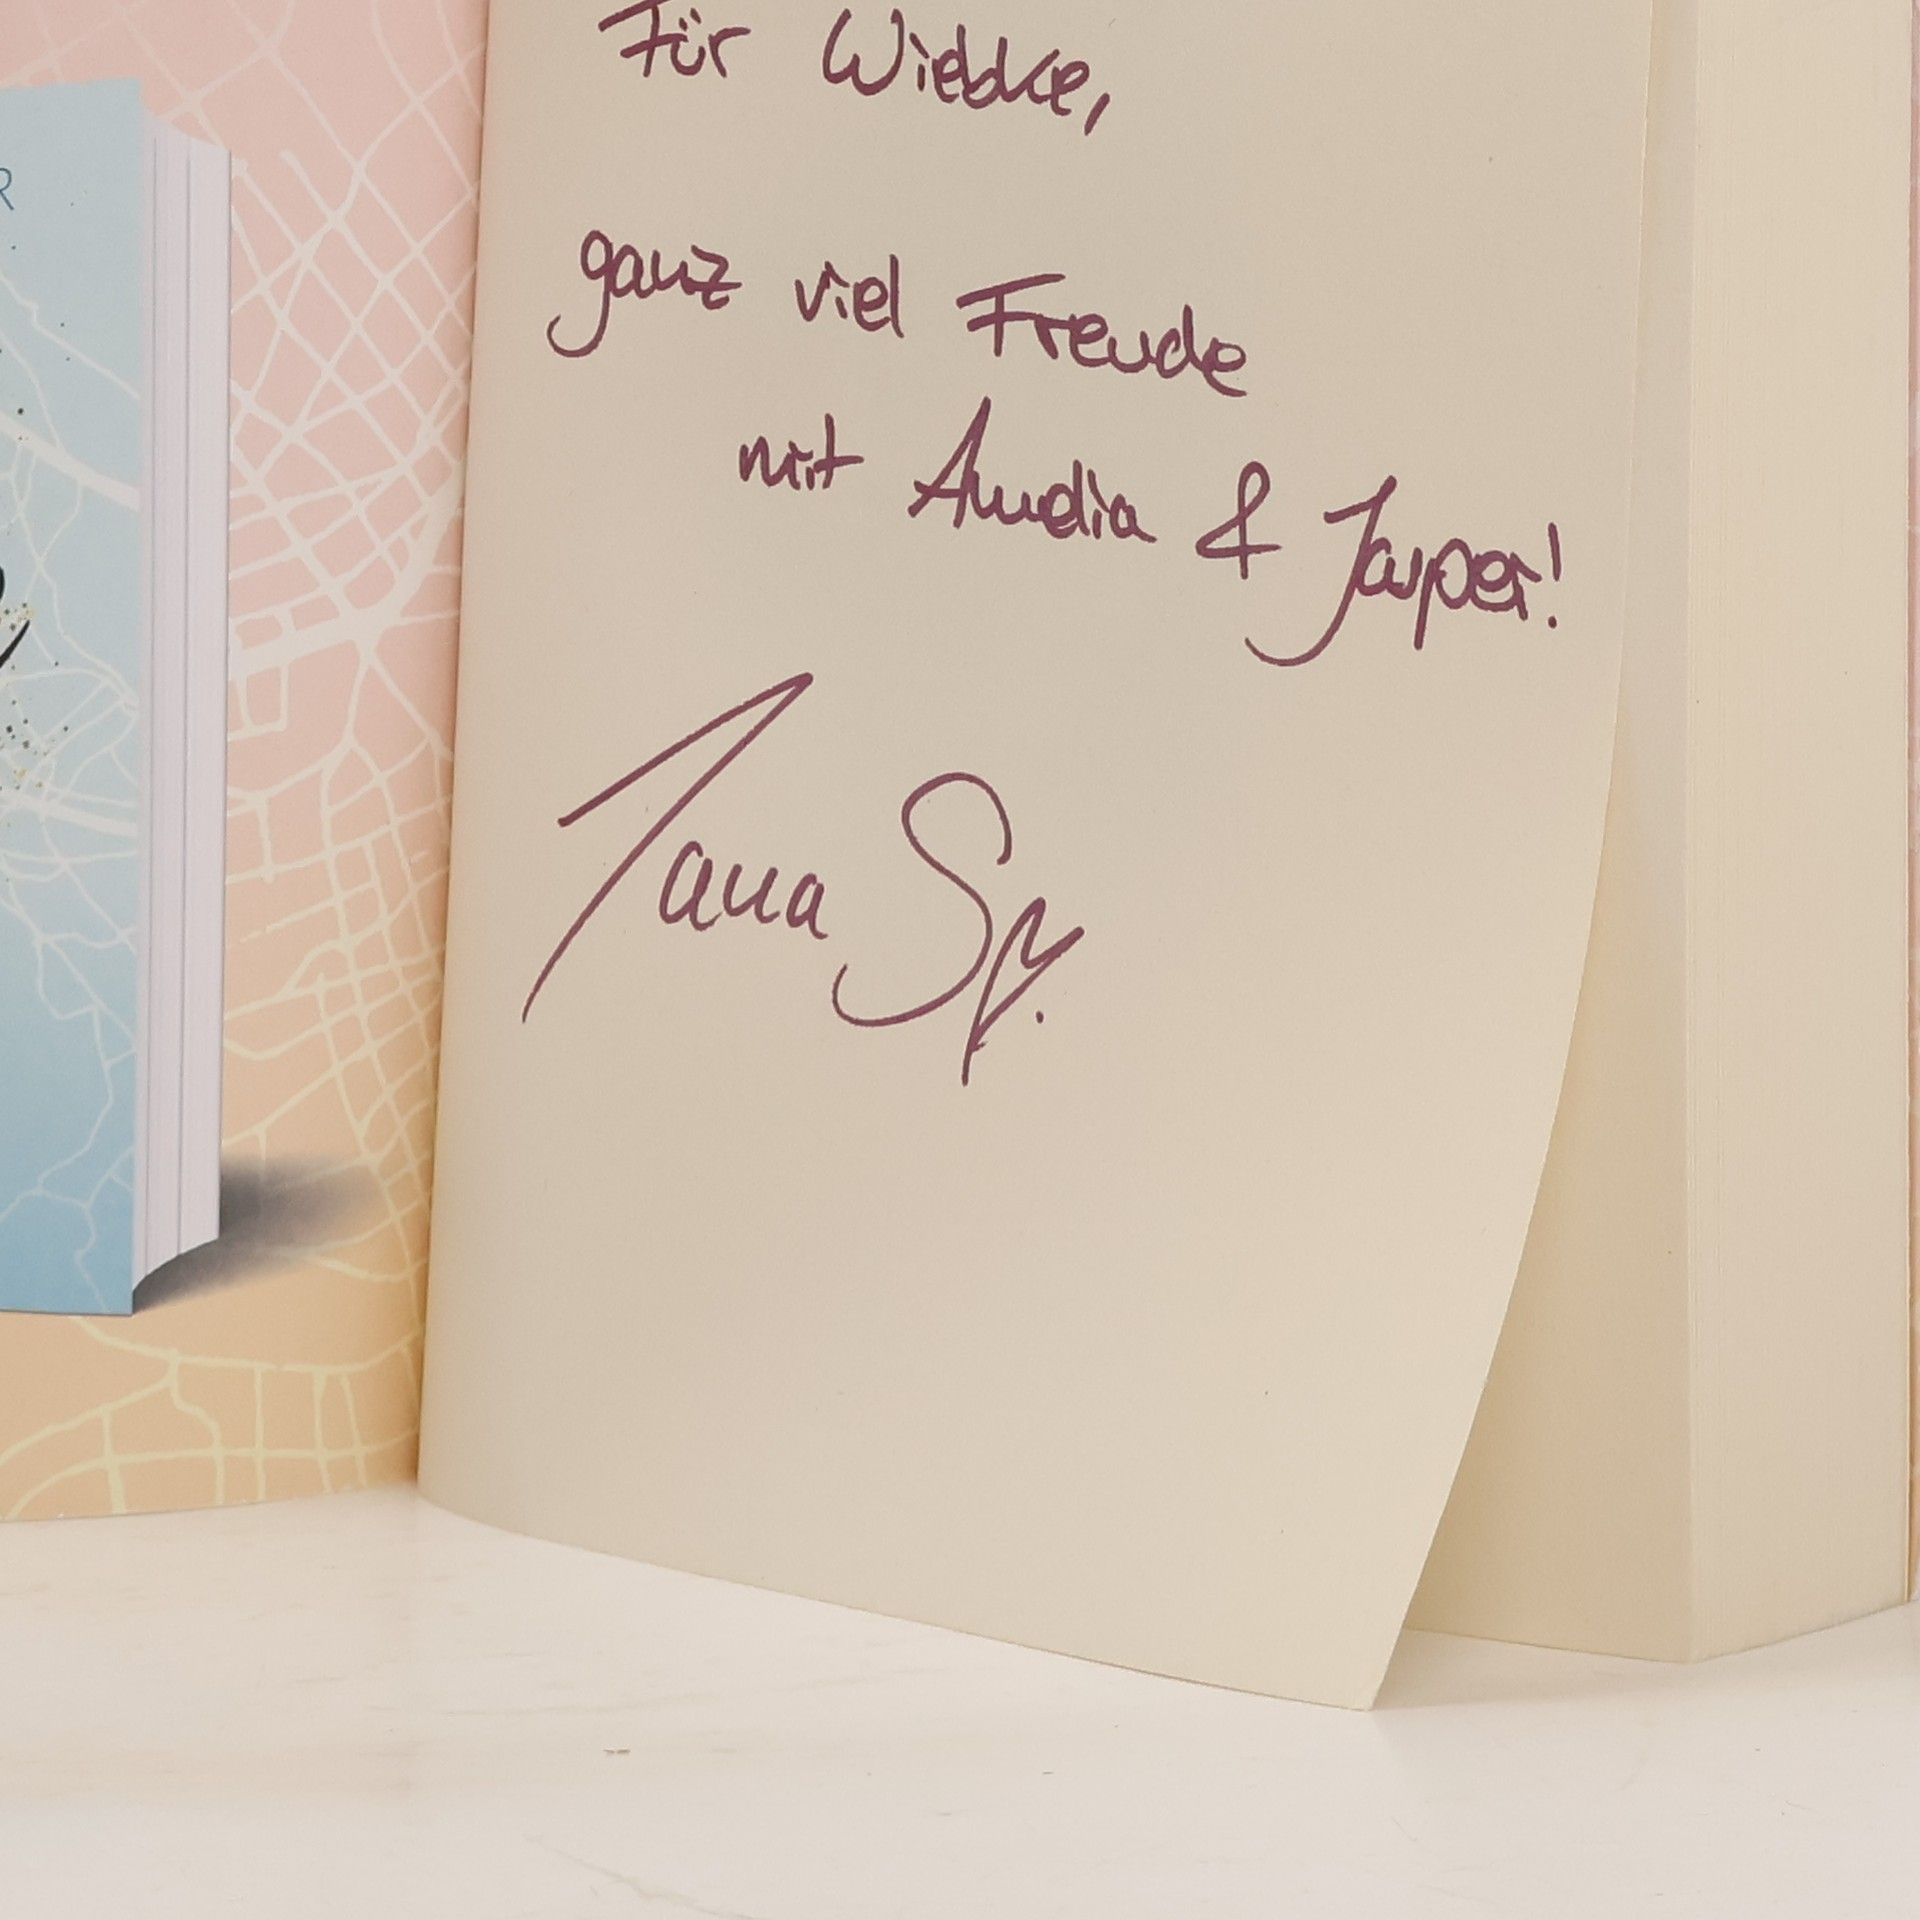 R
Für Wiebke,
ganz viel Freude
mit Amelia & Jasper!
Jana Sch.